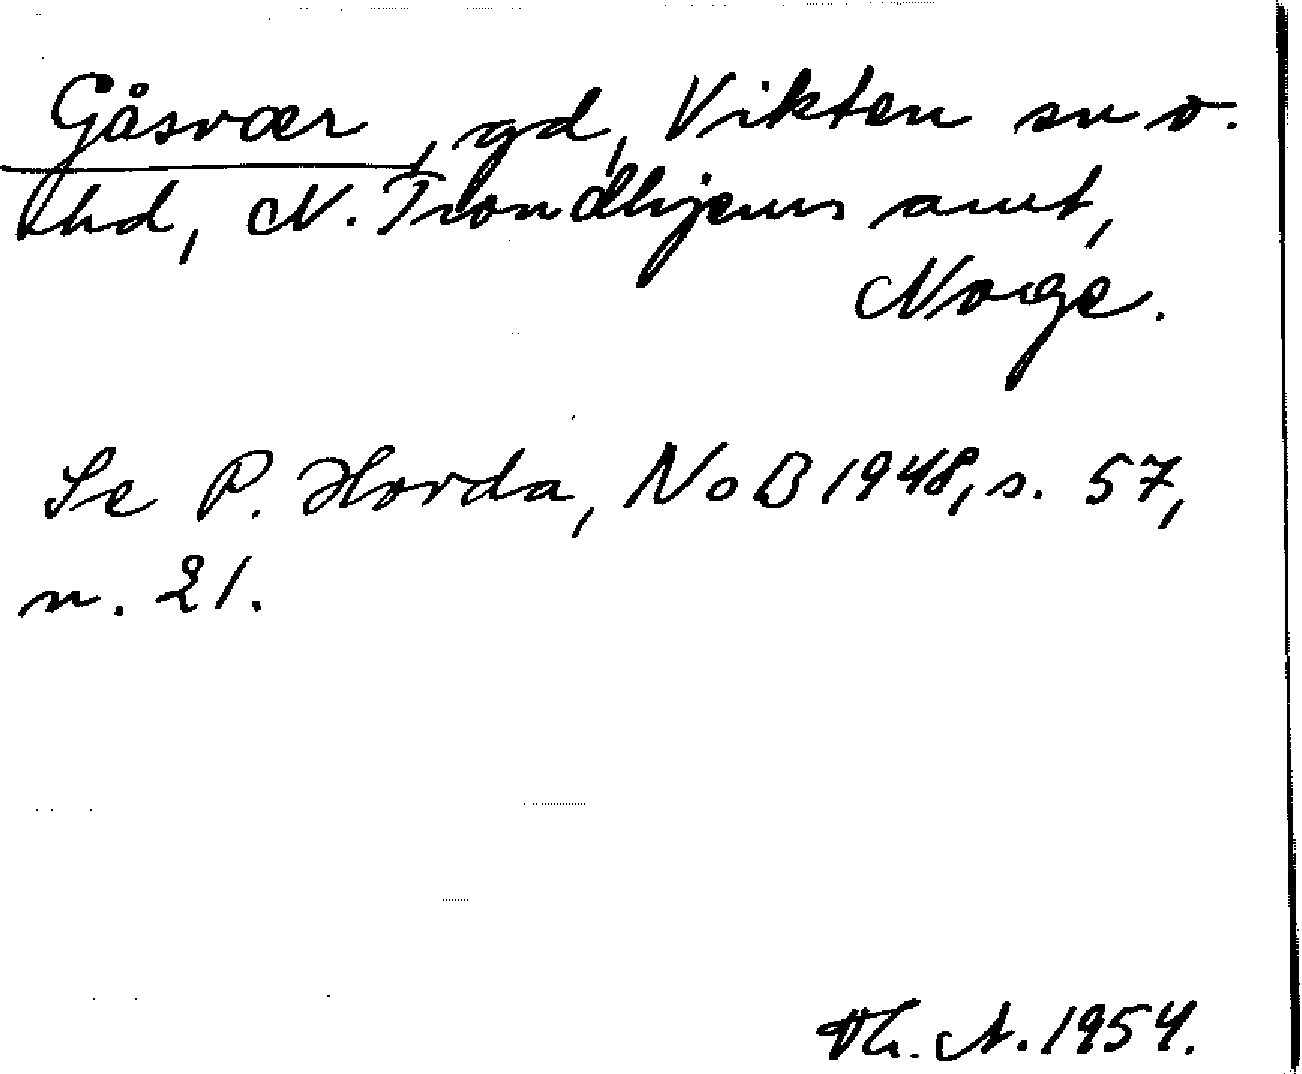 Gåsvær, gd, Vikten sn o.
thd, N. Trondhjems amt,
Norge.
Se P. Hovda, NoB 1948, s. 57,
n. 21.
Th. A. 1954.